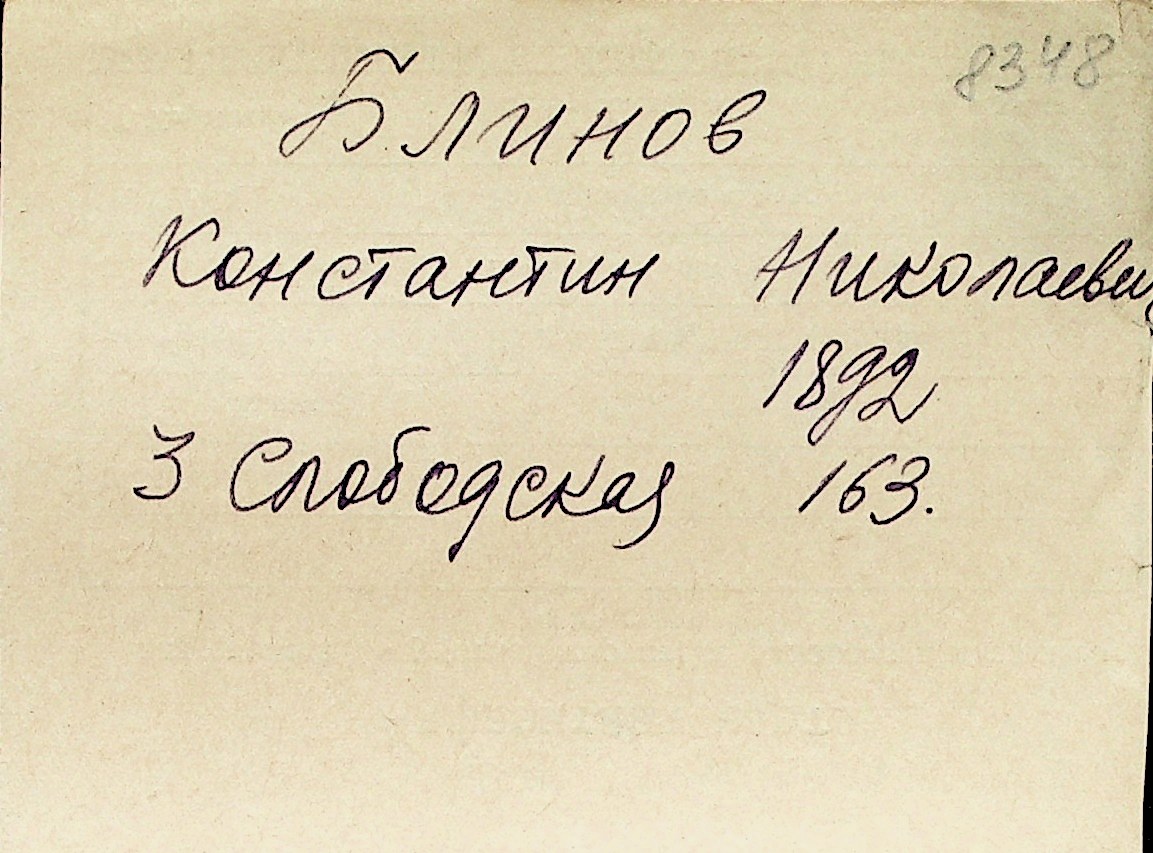 8348
Блинов
Константин Николаевич
1892
3 Слободская 163.